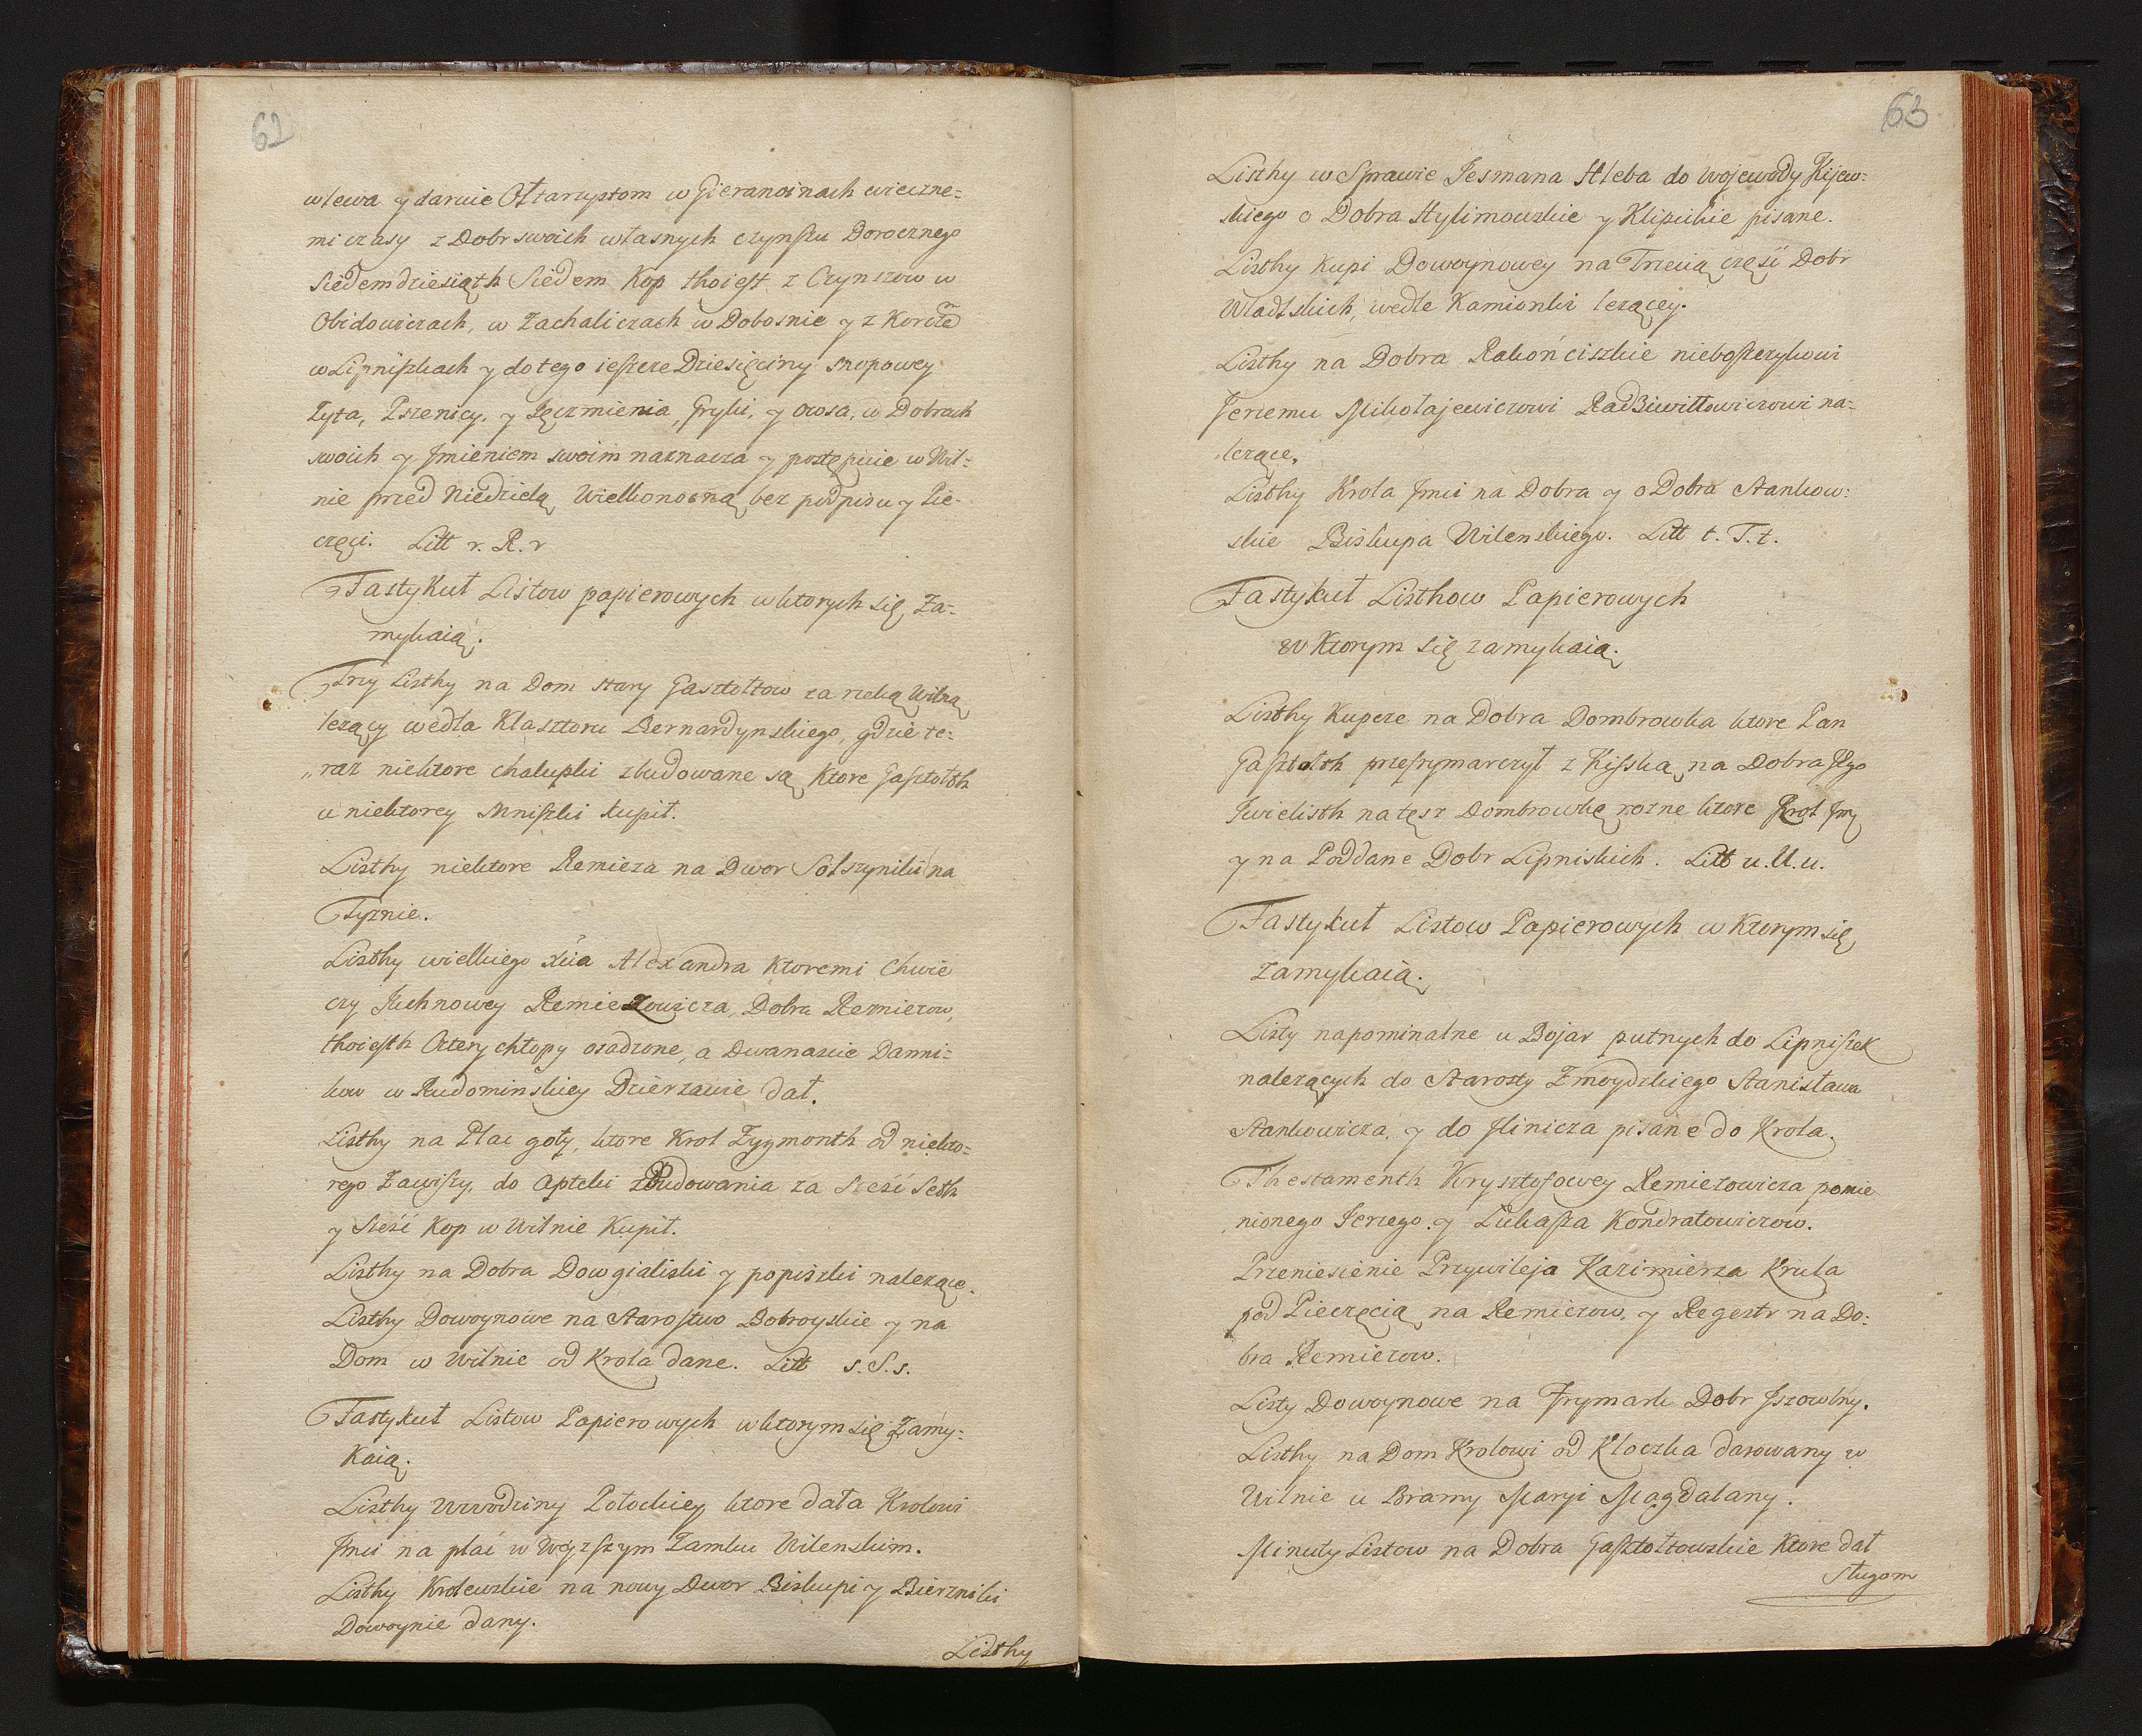 62
wlewa y daruie Ołtarzystom w Gieranoinach wieczne-
mi czasy z Dobr swoich własnych czynszu Dorocznego
Siedemdziesiąth Siedem Kop thoiest z Czynszow w
Obidowiczach, w Zachaliczach w Dobosnie y z Korcżem
w Lipniszkach y do tego ieszcze Dziesięciny snopowey
Zyta, Pszenicy, y Jęczmienia, Gryki, y Owsa, w Dobrach
swoich y Jmieniem swoim naznacza y postępuie w Wil-
nie przed Niedzielą Wielkonocną bez podpisu y Pie-
częci. Litt r. R. r
Fastykuł Listow papierowych w ktorych się Za-
mykaią.
Trzy Listhy na Dom stary Gasztołtow za rzeką Wilną
lezący wedla Klasztoru Bernardynskiego, gdzie te-
„raz niektore chalupki zbudowane są Ktore Gasztołth
u niektorey Mniszki kupił.
Listhy niektore Remieza na Dwor Solszyniki na
Tyznie.
Listhy wielkiego Xcia Alexandra Ktoremi Chwie
czy Juchnowey Remiezowicza, Dobra Remiezow,
thoiesth Cztery chłopy osadzone, a Dwanascie Danni-
kow w Rudominskiey Dzierzawie dał.
Listhy na Plac goły, ktore Krol Zygmonth od niekto-
rego Zawiszy, do Apteki zbudowania za Szesć Seth
y Szesć Kop w Wilnie Kupił.
Listhy na Dobra Dowgialiski y popiszki nalezące.
Listhy Dowoynowe na Starostwo Bobroyskie y na
Dom w Wilnie od Krola dane. Litt s. S. s.
Fastykuł Listow Papierowych w ktorym się Zamy-
kaią.
Listhy Urzodziny Połockiey ktore dała Krolowi
Jmci na plac w Wyzszym Zamku Wilenskim.
Listhy Krolewskie na nowy Dwor Biskupi y Bierzniki
Dowoynie dany.
Listhy
63
Listhy w Sprawie Jesmana Hleba do Wojewody Kijew-
skiego o Dobra Hylimowskie y Klipickie pisane.
Listhy Kupi Dowoynowey na Trzecią część Dobr
Wladskich, wedle Kamionki lezącey.
Listhy na Dobra Rakończiskie nieboszczykowi
Jerzemu Mikołajewiczowi Radziwiłłowiczowi na-
lezące.
Listhy Krola Jmci na Dobra y o Dobra Stankow-
skie Biskupa Wilenskiego. Litt t. T. t.
Fastykuł Listhow Papierowych
w Ktorym się zamykaią.
Listhy Kupcze na Dobra Dombrowka ktore Pan
Gasztołth przefrymarczył z Kisską na Dobra Jego
Jwielisth natęsz Dombrowkę rozne ktore Krol Jm
y na Poddane Dobr Lipniskich. Litt u. U. u.
Fastykuł Listow Papierowych w Ktorym się
zamykaią.
Listy napominalne u Bojar putnych do Lipniszek
nalezących do Starosty Zmoydzkiego Stanisława
Stankowicza, y do Jlinicza pisane do Krola.
Thestamenth Krysztofowey Remiezowicza pomie
nionego Jerzego y Lukasza Kondratowiczow.
Przeniesienie Przywileja Kazimierza Krula
pod Pieczęcią na Remiezow, y Regestr na Do-
bra Remiezow.
Listy Dowoynowe na Frymark Dobr Jszowlny.
Listhy na Dom Krolowi od Kloczka darowany w
Wilnie u Bramy Maryi Magdalany.
Minuty Listow na Dobra Gasztołtowskie Ktore dał
Sługom